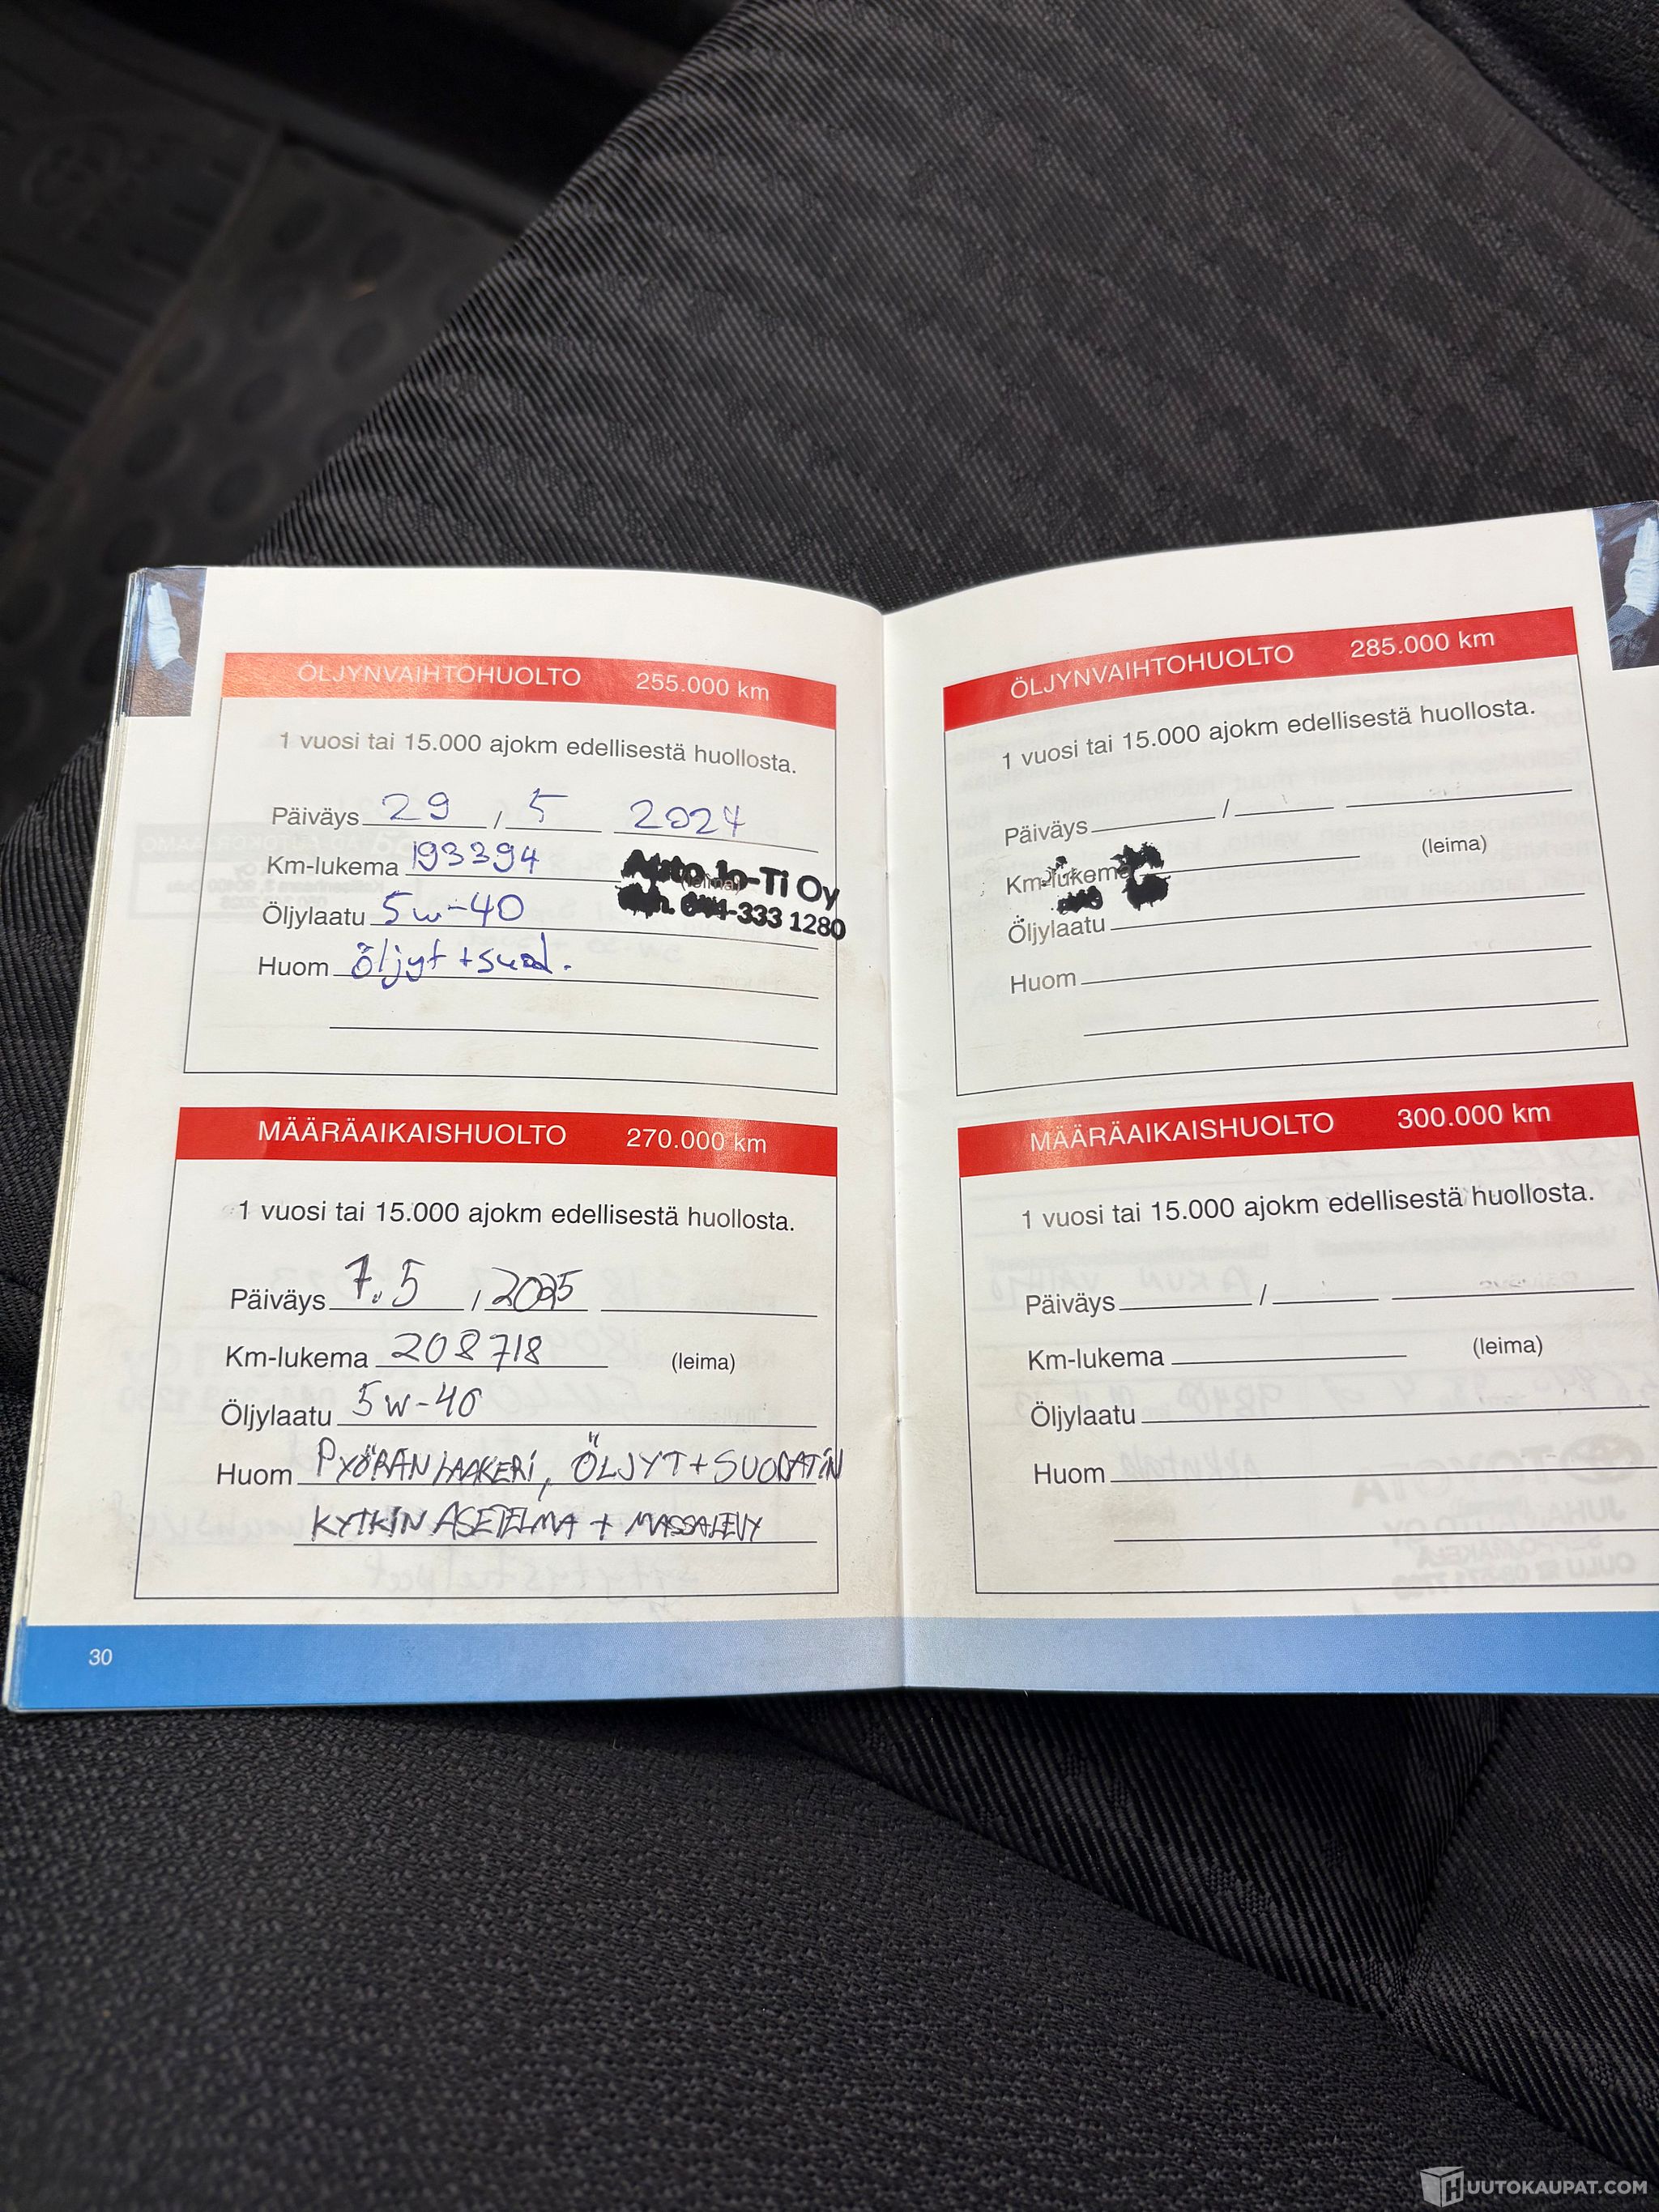 ÖLJYNVAIHTOHUOLTO 255.000 km
1 vuosi tai 15.000 ajokm edellisestä huollosta.
Päiväys 29 / 5 2024
Km-lukema 193394
(leima)
Auto Jo-Ti Oy
Öljylaatu 5w-40
333 1280
Huom öljyt + suod.
MÄÄRÄAIKAISHUOLTO 270.000 km
1 vuosi tai 15.000 ajokm edellisestä huollosta.
Päiväys 7.5 / 2025
Km-lukema 208718 (leima)
Öljylaatu 5w-40
Huom PYÖRÄN LAAKERI, ÖLJYT + SUODATIN
KYTKIN ASETELMA + MASSALEVY
30
ÖLJYNVAIHTOHUOLTO 285.000 km
1 vuosi tai 15.000 ajokm edellisestä huollosta.
Päiväys /
Km-lukema (leima)
Öljylaatu
Huom
MÄÄRÄAIKAISHUOLTO 300.000 km
1 vuosi tai 15.000 ajokm edellisestä huollosta.
Päiväys /
Km-lukema (leima)
Öljylaatu
Huom
HUUTOKAUPAT.COM